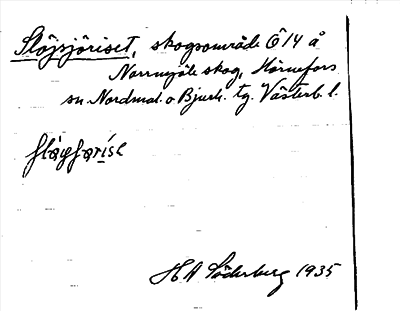 Slöjsjöriset, skogsområde Ö 14 å
Norrmjöle skog, Hörnefors
sn. Nordmal. o Bjurh. tg. Västerb. l.
H A Söderberg 1935